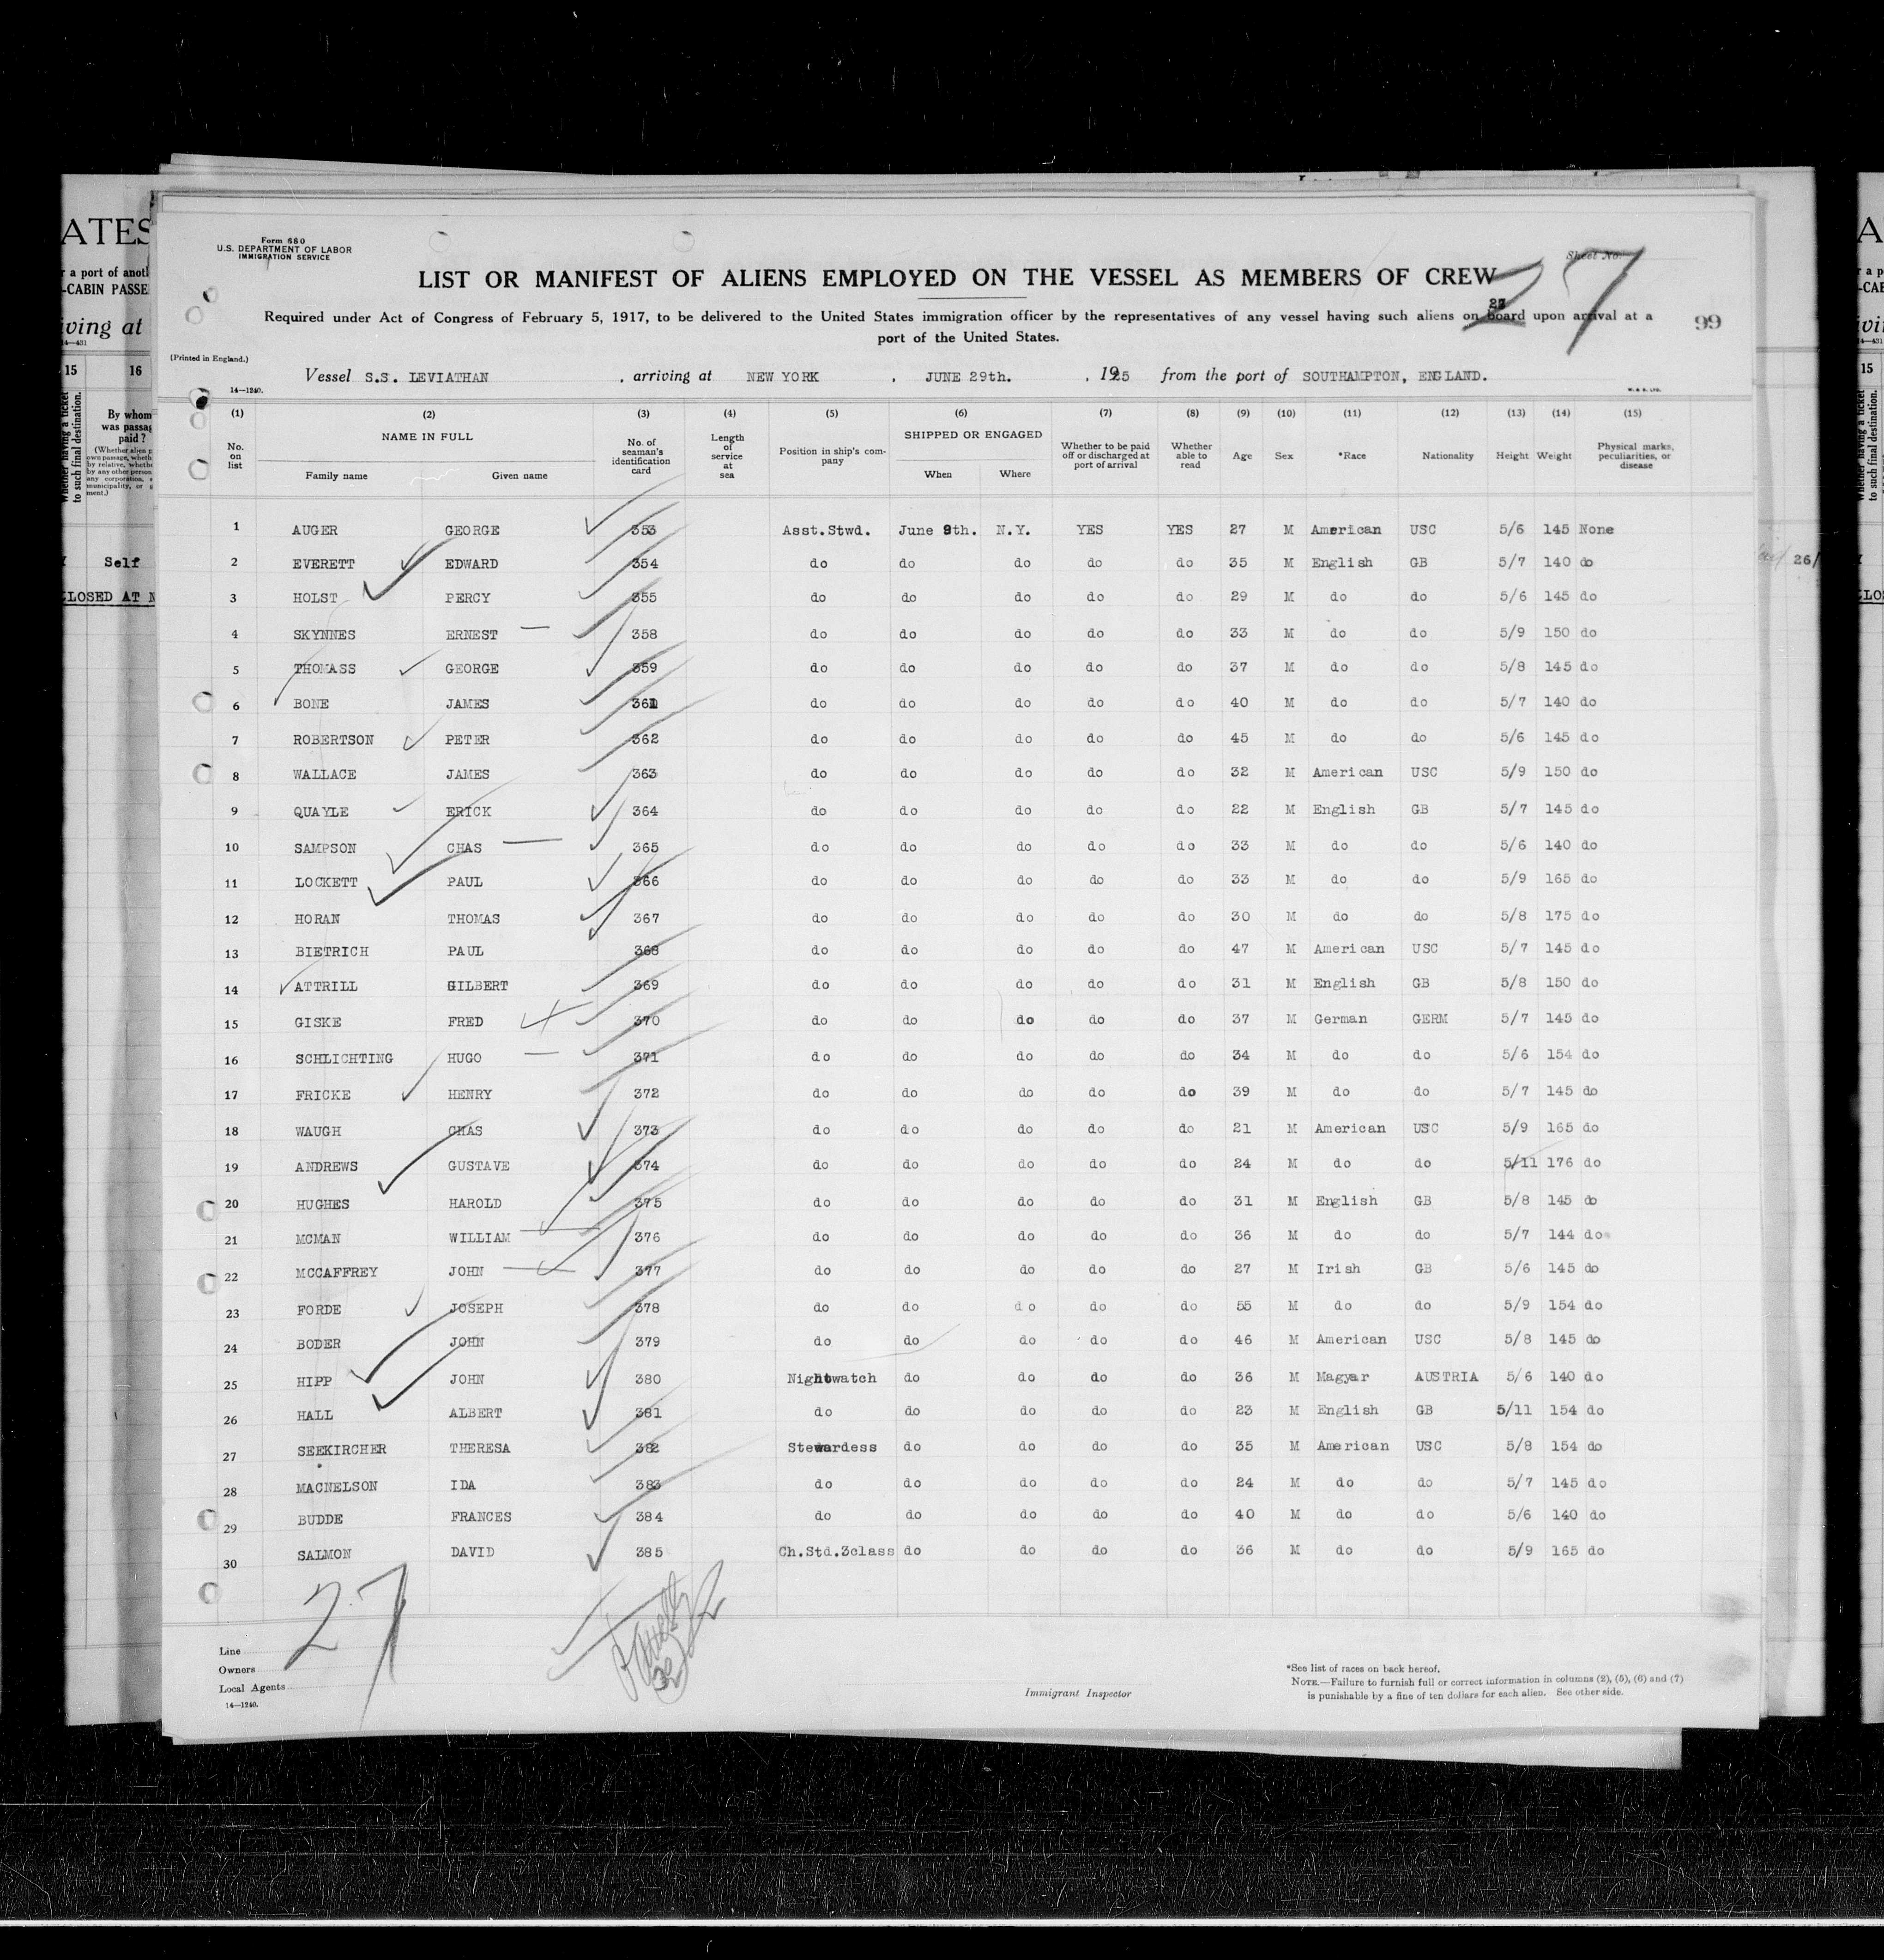 Form 680
U.S. DEPARTMENT OF LABOR
IMMIGRATION SERVICE
Sheet No.
27
LIST OR MANIFEST OF ALIENS EMPLOYED ON THE VESSEL AS MEMBERS OF CREW
Required under Act of Congress of February 5, 1917, to be delivered to the United States immigration officer by the representatives of any vessel having such aliens on board upon arrival at a
port of the United States.
99
(Printed in England.)
Vessel S.S. LEVIATHAN , arriving at NEW YORK , JUNE 29th. , 1925 from the port of SOUTHAMPTON, ENGLAND.
14—1240.
(1) (2) (3) (4) (5) (6) (7) (8) (9) (10) (11) (12) (13) (14) (15)
No. on list NAME IN FULL Family name Given name No. of seaman's identification card Length of service at sea Position in ship's company SHIPPED OR ENGAGED When Where Whether to be paid off or discharged at port of arrival Whether able to read Age Sex *Race Nationality Height Weight Physical marks, peculiarities, or disease
1 AUGER GEORGE 353 Asst.Stwd. June 9th. N.Y. YES YES 27 M American USC 5/6 145 None
2 EVERETT EDWARD 354 do do do do do 35 M English GB 5/7 140 do
3 HOLST PERCY 355 do do do do do 29 M do do 5/6 145 do
4 SKYNNES ERNEST 358 do do do do do 33 M do do 5/9 150 do
5 THOMASS GEORGE 359 do do do do do 37 M do do 5/8 145 do
6 BONE JAMES 361 do do do do do 40 M do do 5/7 140 do
7 ROBERTSON PETER 362 do do do do do 45 M do do 5/6 145 do
8 WALLACE JAMES 363 do do do do do 32 M American USC 5/9 150 do
9 QUAYLE ERICK 364 do do do do do 22 M English GB 5/7 145 do
10 SAMPSON CHAS 365 do do do do do 33 M do do 5/6 140 do
11 LOCKETT PAUL 366 do do do do do 33 M do do 5/9 165 do
12 HORAN THOMAS 367 do do do do do 30 M do do 5/8 175 do
13 BIETRICH PAUL 368 do do do do do 47 M American USC 5/7 145 do
14 ATTRILL GILBERT 369 do do do do do 31 M English GB 5/8 150 do
15 GISKE FRED 370 do do do do do 37 M German GERM 5/7 145 do
16 SCHLICHTING HUGO 371 do do do do do 34 M do do 5/6 154 do
17 FRICKE HENRY 372 do do do do do 39 M do do 5/7 145 do
18 WAUGH CHAS 373 do do do do do 21 M American USC 5/9 165 do
19 ANDREWS GUSTAVE 374 do do do do do 24 M do do 5/11 176 do
20 HUGHES HAROLD 375 do do do do do 31 M English GB 5/8 145 do
21 MCMAN WILLIAM 376 do do do do do 36 M do do 5/7 144 do
22 MCCAFFREY JOHN 377 do do do do do 27 M Irish GB 5/6 145 do
23 FORDE JOSEPH 378 do do do do do 55 M do do 5/9 154 do
24 BODER JOHN 379 do do do do do 46 M American USC 5/8 145 do
25 HIPP JOHN 380 Nightwatch do do do do 36 M Magyar AUSTRIA 5/6 140 do
26 HALL ALBERT 381 do do do do do 23 M English GB 5/11 154 do
27 SEEKIRCHER THERESA 382 Stewardess do do do do 35 M American USC 5/8 154 do
28 MACNELSON IDA 383 do do do do do 24 M do do 5/7 145 do
29 BUDDE FRANCES 384 do do do do do 40 M do do 5/6 140 do
30 SALMON DAVID 385 Ch.Std.3class do do do do 36 M do do 5/9 165 do
27
Line
Owners
Local Agents
14—1240.
Immigrant Inspector
*See list of races on back hereof.
NOTE.—Failure to furnish full or correct information in columns (2), (5), (6) and (7)
is punishable by a fine of ten dollars for each alien. See other side.
ATES
-CABIN PASSE
iving at
14—431
15 16
Whether having a ticket to such final destination.
By whom
was passag
paid ?
Self
LOSED AT N
26/